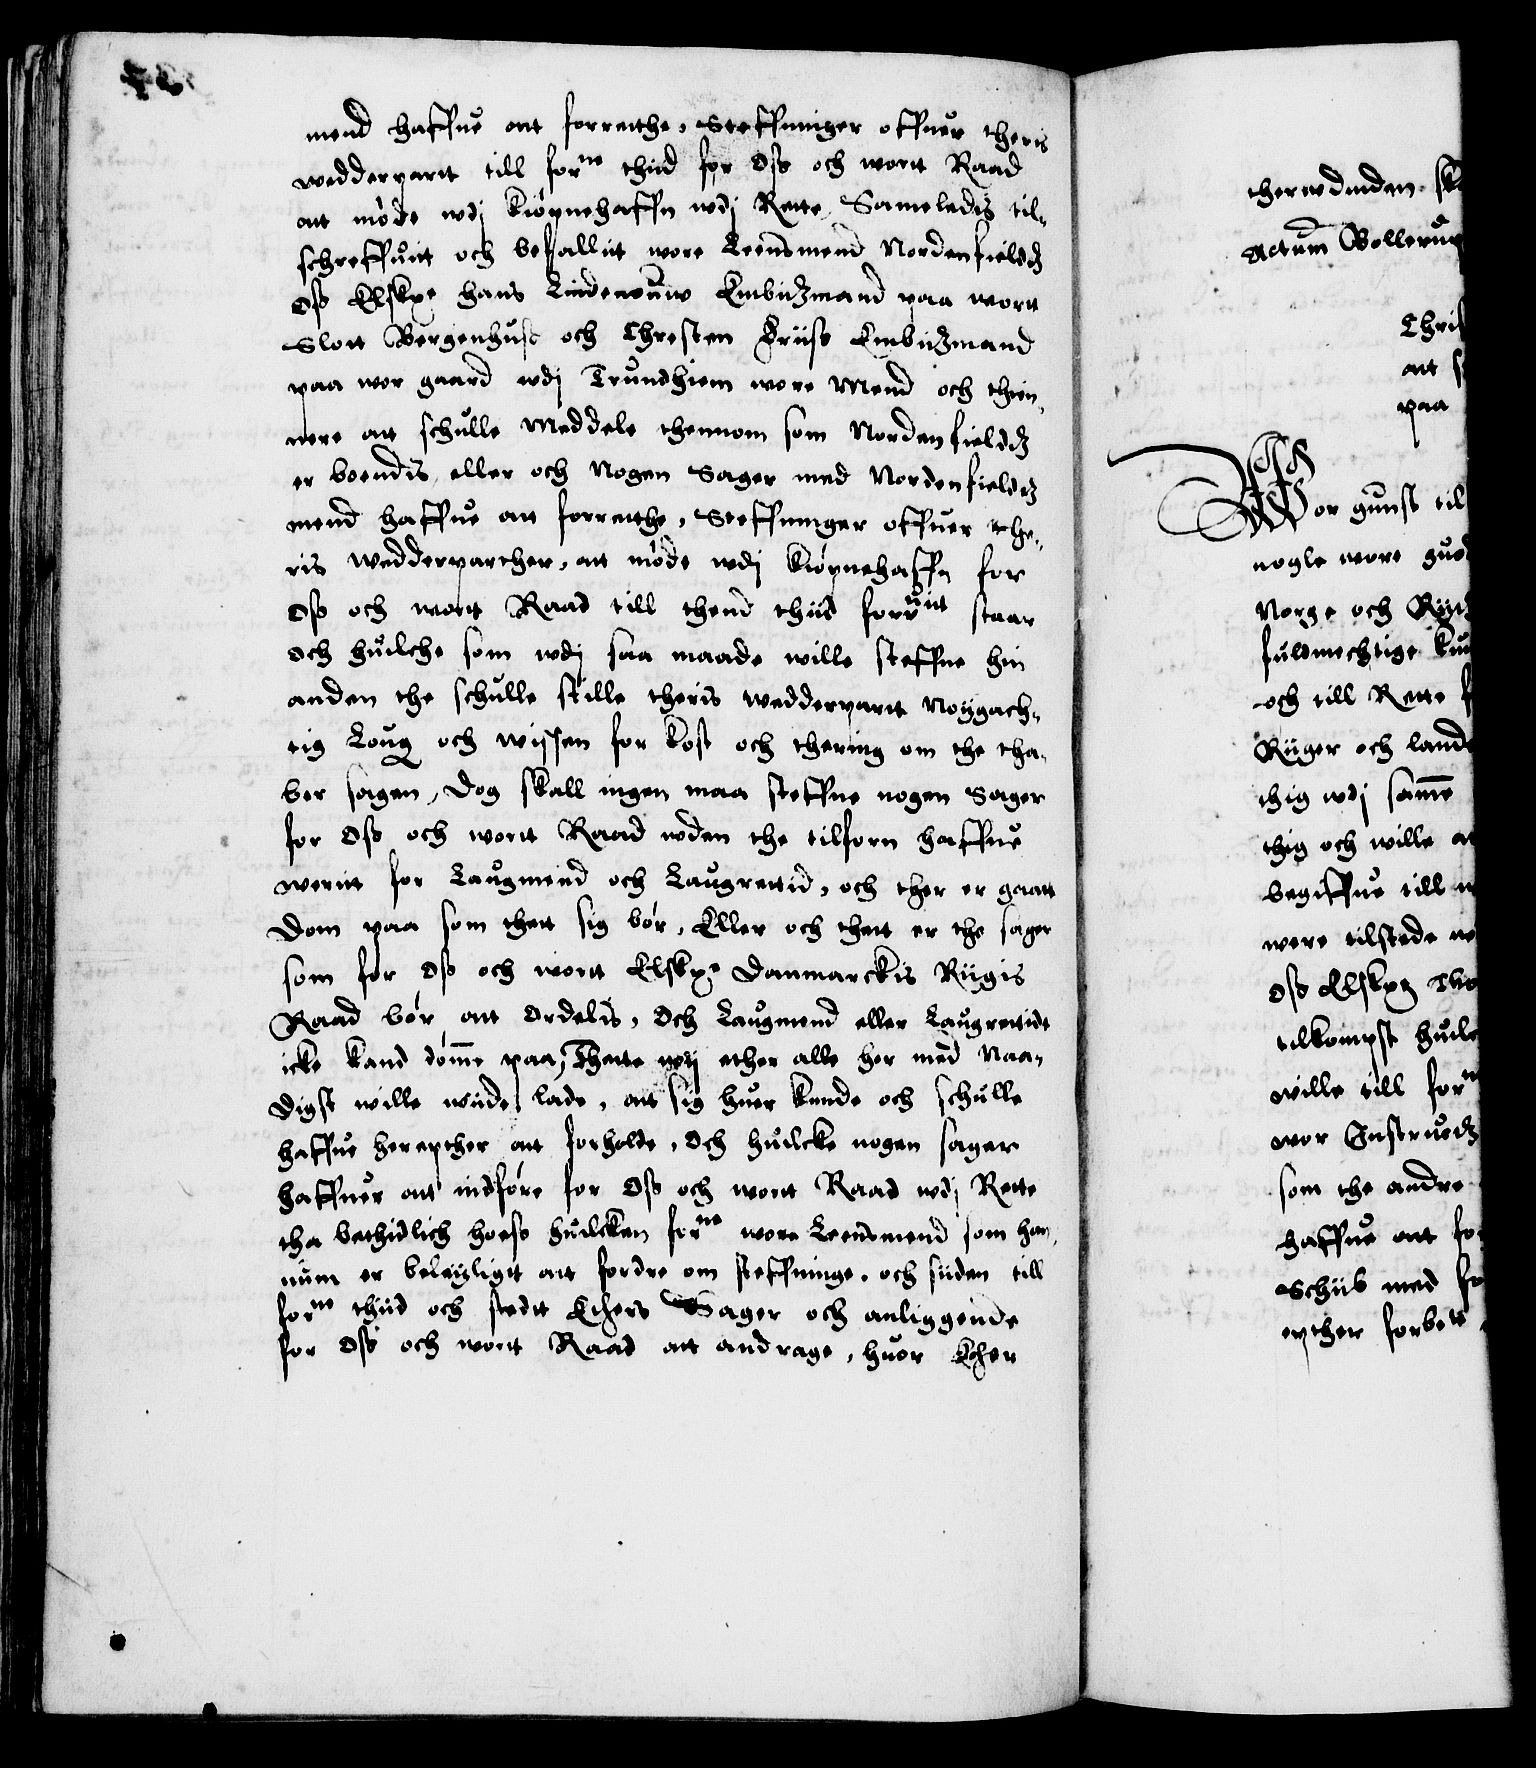 mend haffue att forrenthe, Steffninger offuer theris
wedderpartt till forne thiid for Oss och wortt Raad
att möde wdj Kiöpnehaffn wdj Rette, Sameledis til-
schreffuitt och befallitt wore Leensmend Nordenfieldz
Oss Elskpe Hans Lindenouw Embitzmand paa wortt
Slott Bergenhuss och Chresten Friiss Embitzmand
paa wor gaard wdj Trundhiem wore Mend och thien-
nere att schulle Meddele thennom som Nordenfieldz
er boendis, eller och Nogen Sager med Nordenfieldz
mend haffue att forrenthe, Steffninger offuer the-
ris wedderparther, att möde wdj Kiöpnehaffn for
Oss och wortt Raad till thend thiid foruitt staar
Och huilche som wdj saa maade wille steffne hin
anden the schulle stille theris wedderpartt Nöygach-
tig Loug och wissen for kost och thering om the tha-
ber sagen, Dog skall ingen maa steffne nogen Sager
for Oss och wortt Raad wden the tilforn haffue
weritt for Laugmend och Laugrettid, och ther er gaatt
Dom paa som thett sig bör, Eller och thett er the sager
som for Oss och wortt Elskpe Danmarckis Riigis
Raad bör att Ordelis, Och Laugmend eller Laugrettidt
icke kand döme paa, Thette wij ether alle her med Naa-
digst wille wiide lade, att sig huer kunde och schulle
haffue herepther att forholde, Och huilcke nogen sager
haffuer att indföre for Oss och wortt Raad wdj Rette
tha bethidlich hoess huilcken forne wore Leensmend som han-
num er beleyligtt att fordre om steffninge, och siiden till
forne thiid och stedtt Ethers Sager och anliggende
for Oss och wortt Raad att andrage, huor Ether
therwdinden
Actum Bollerup
att
paa
Wor gunst til
nogle wore
Norge och
fuldmechtige
och till Rette
Riiger och
thig wdj same
thig och wille
begiffue till
were tilstede
Oss Elskpe
tilkompst
wille till forne
wor
som the andre
haffue att
Schiib med
epther